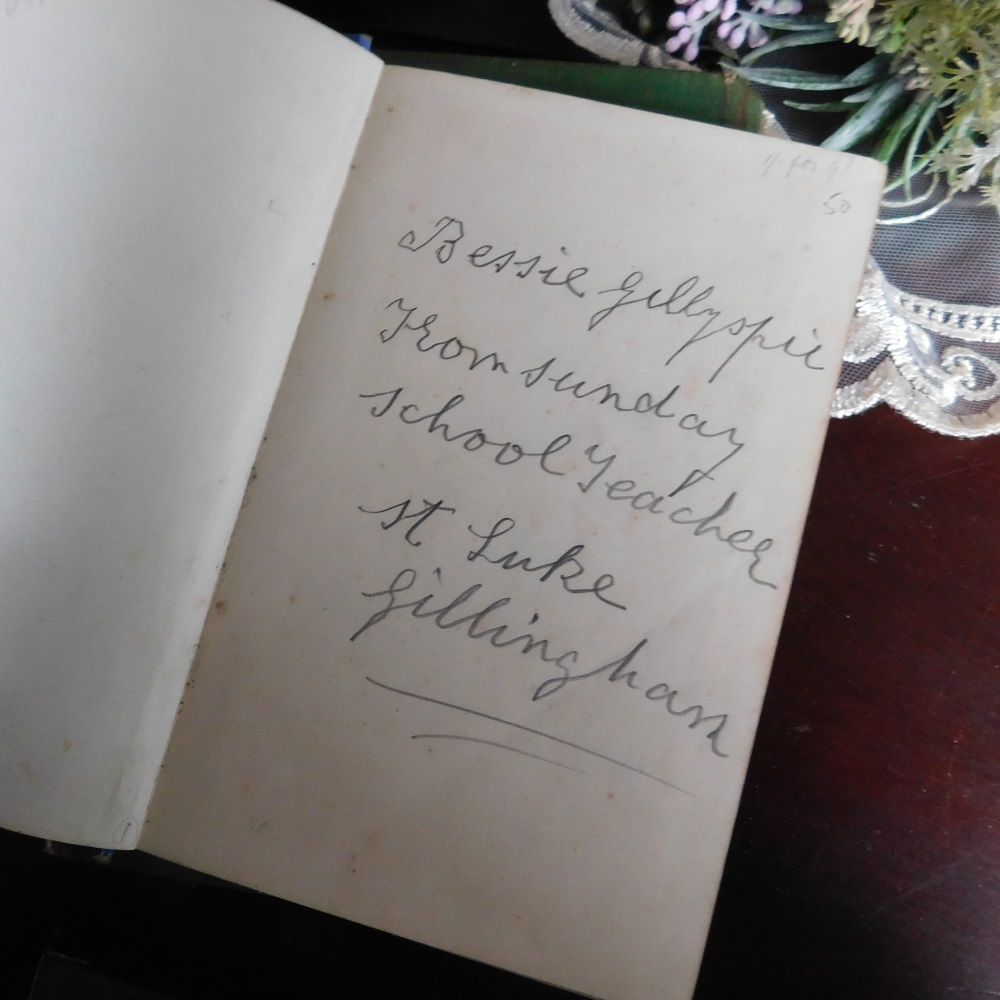 50
Bessie Gillyspie
From sunday
school Teacher
st Luke
Gillingham